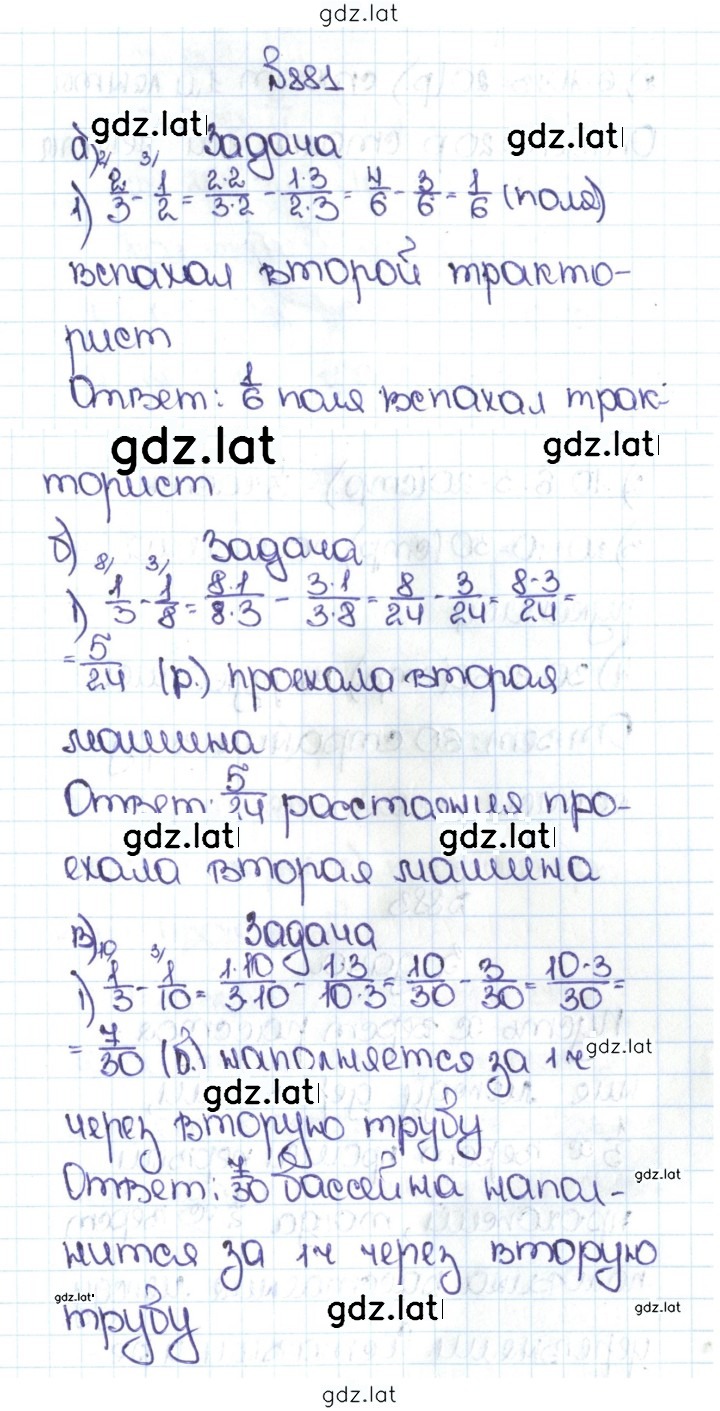 gdz.lat
№881
gdz.lat gdz.lat
а) Задача
1) 2/3 - 1/2 = 2·2/3·2 - 1·3/2·3 = 4/6 - 3/6 = 1/6 (поля)
вспахал второй тракто-
рист
Ответ: 1/6 поля вспахал трак-
gdz.lat gdz.lat
торист
б) Задача
8/ 3/
1) 1/3 - 1/8 = 8·1/8·3 - 3·1/3·8 = 8/24 - 3/24 = 8-3/24 =
= 5/24 (р.) проехала вторая
машина
Ответ: 5/24 расстояния про-
gdz.lat gdz.lat
ехала вторая машина
в) Задача
10/ 3/
1) 1/3 - 1/10 = 1·10/3·10 - 1·3/10·3 = 10/30 - 3/30 = 10-3/30 =
= 7/30 (б.) наполняется за 1 ч
gdz.lat
gdz.lat
через вторую трубу
Ответ: 7/30 бассейна напол-
gdz.lat
нится за 1ч через вторую
gdz.lat
трубу
gdz.lat gdz.lat
gdz.lat